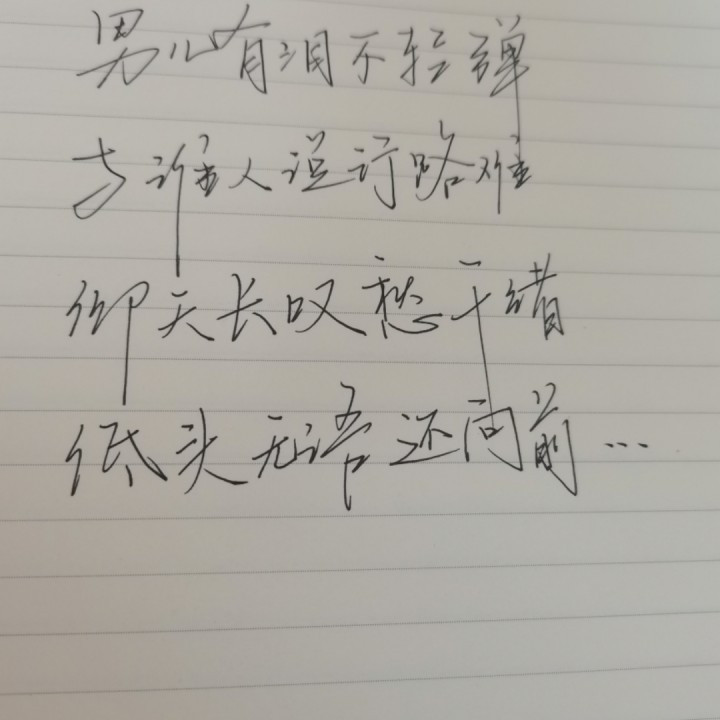 男儿有泪不轻弹
与谁人说行路难
仰天长叹愁千绪
低头无语还向前...